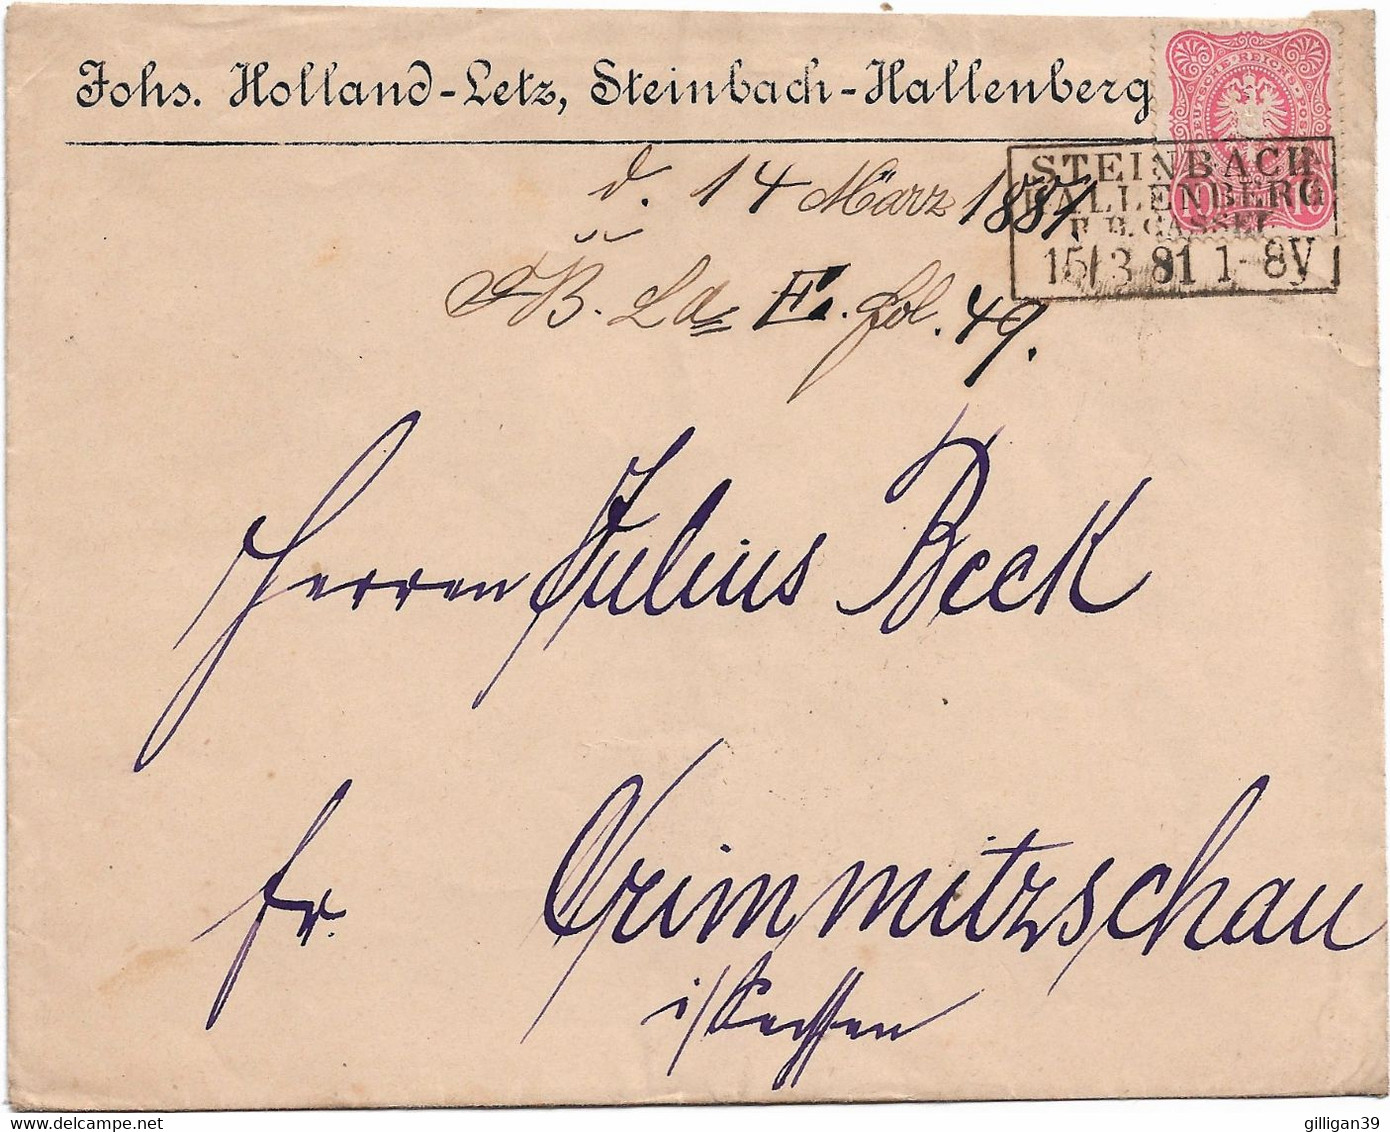 Johs. Holland-Letz, Steinbach-Hallenberg
DEUTSCHE REICHS-POST
10 10
STEINBACH
HALLENBERG
R.B. CASSEL
15/3 81 1-8V
d. 14 März 1881.
B. La E. fol. 49.
Herren Julius Beck
fr. Crimmitzschau
i/Sachsen
gilligan39